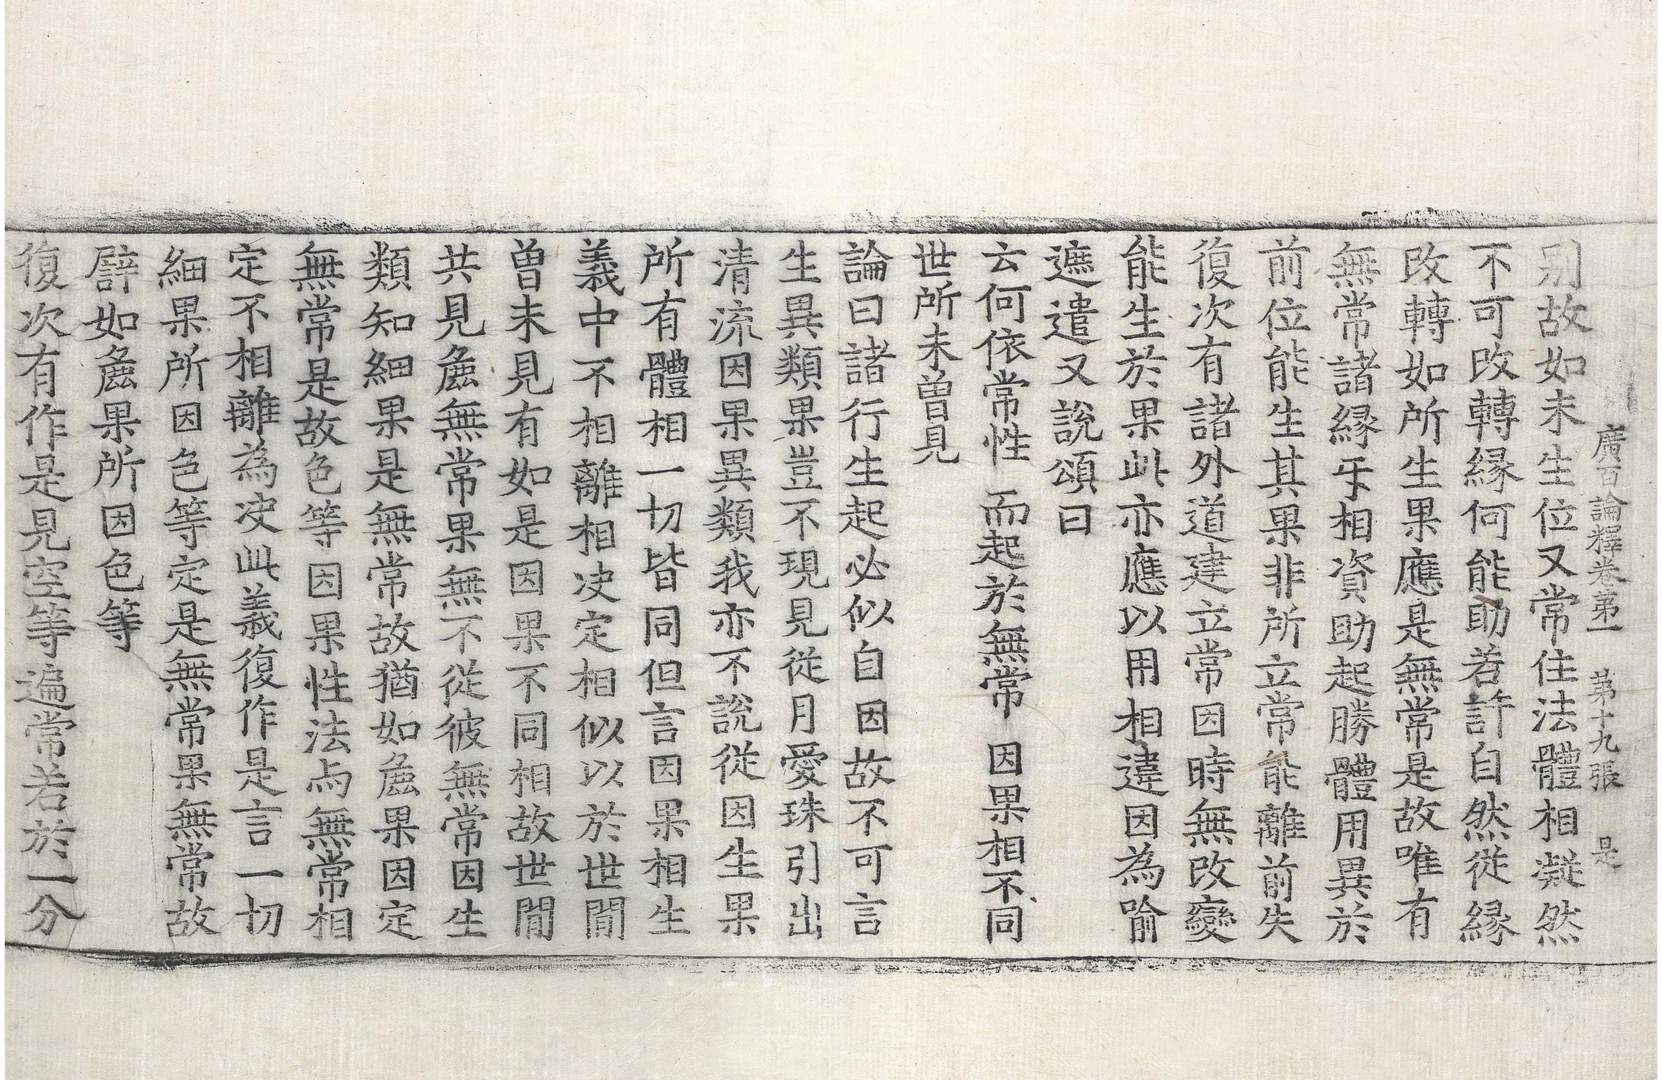 廣百論釋卷第一 第十九張 是
别故如未生位又常住法體相凝然
不可改轉縁何能助若許自然從縁
改轉如所生果應是無常是故唯有
無常諸縁㸦相資助起勝體用異於
前位能生其果非所立常能離前失
復次有諸外道建立常因時無改變
能生於果此亦應以用相違因為喻
遮遣又說頌曰
云何依常性 而起於無常 因果相不同
世所未曾見
論曰諸行生起必似自因故不可言
生異類果豈不現見從月愛珠引出
清流因果異類我亦不說從因生果
所有體相一切皆同但言因果相生
義中不相離相决定相似以於世間
曾未見有如是因果不同相故世間
共見麁無常果無不從彼無常因生
類知細果是無常故猶如麁果因定
無常是故色等因果性法与無常相
定不相離為决此義復作是言一切
細果所因色等定是無常果無常故
譬如麁果所因色等
復次有作是見空等遍常若於一分